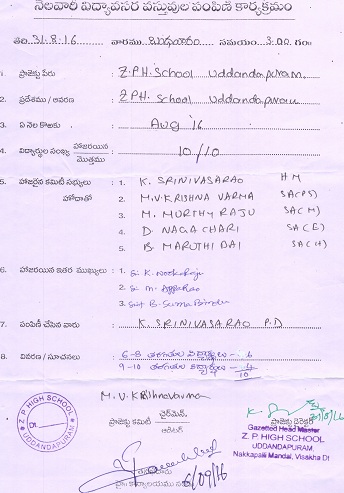 నెలవారీ విద్యావసర వస్తువుల పంపిణీ కార్యక్రమం
తేది. 31.8.16 వారము బుధవారం సమయం 3:00 గం॥
1. ప్రాజెక్టు పేరు : Z.P.H. School Uddandapuram.
2. ప్రదేశము / ఆవరణ : ZPH. School Uddandapuram
3. ఏ నెల కొఱకు : Aug '16
4. విద్యార్థుల సంఖ్య హాజరయిన / మొత్తము : 10/10
5. హాజరైన కమిటీ సభ్యులు : 1. K. SRINIVASARAO HM
హోదాతో 2. M.V.KRISHNA VARMA SA(PS)
3. M. MURTHY RAJU SA(M)
4. D. NAGA CHARI SA(E)
5. B. MARUTHI BAI SA(H)
6. హాజరయిన ఇతర ముఖ్యులు : 1. Sri K. Nooka Raju
2. Sri M. Appa Rao
3. Smt B. Suma Bindu
7. పంపిణీ చేసిన వారు : K. SRINIVASARAO P.D
8. వివరణ / సూచనలు : 6-8 తరగతుల విద్యార్థులు - 6
9-10 తరగతుల విద్యార్థులు - 4
10
M.V.Krishnavarma
ప్రాజెక్టు కమిటీ ఛైర్మెన్,
ఆడిటర్
ప్రాజెక్టు డైరెక్టర్
31/08/16
Gazetted Head Master
Z. P. HIGH SCHOOL
UDDANDAPURAM,
Nakkapalli Mandal, Visakha Dt
Z. P. HIGH SCHOOL
Dt
UDDANDAPURAM
6/09/16
కార్యాలయము